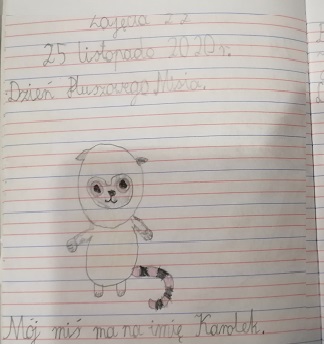 Zajęcia 22
25 listopada 2020r.
Dzień Pluszowego Misia.
Mój miś ma na imię Karolek.